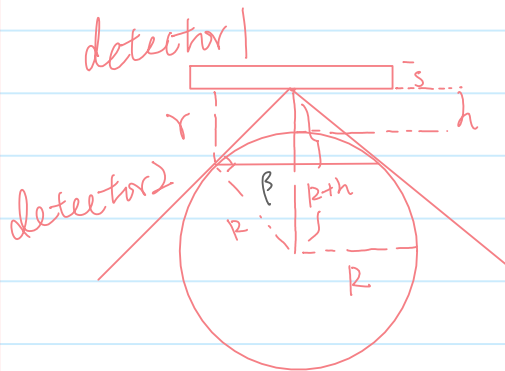 detector1
s
r
h
deteector2
β
R+h
R
R